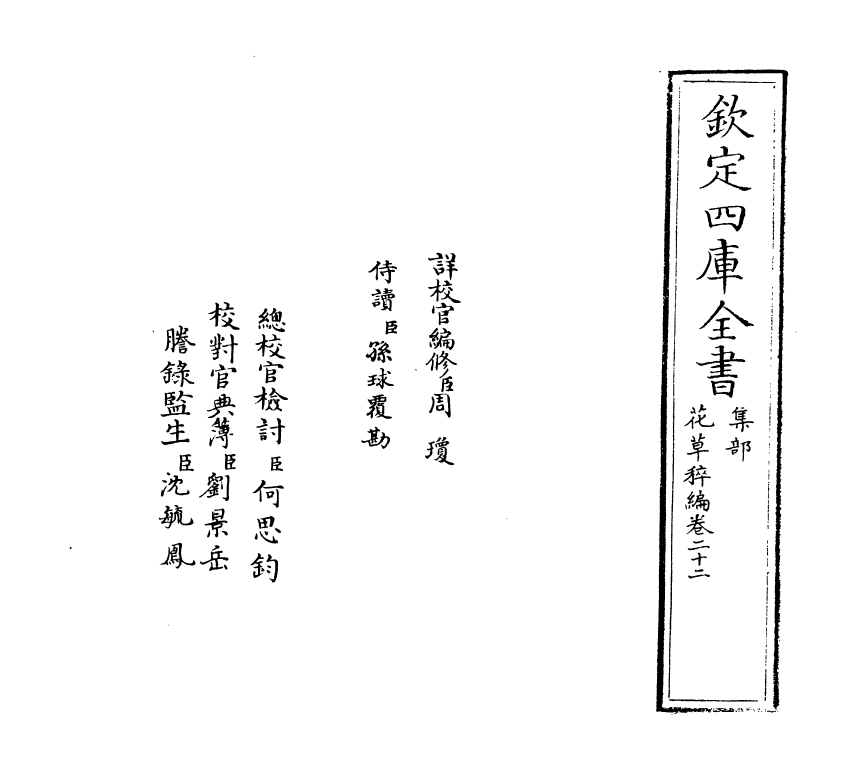 欽定四庫全書
集部
花草稡編卷二十二
詳校官編修臣周瓊
侍讀臣孫球覆勘
總校官檢討臣何思鈞
校對官典簿臣劉景岳
謄錄監生臣沈毓鳳